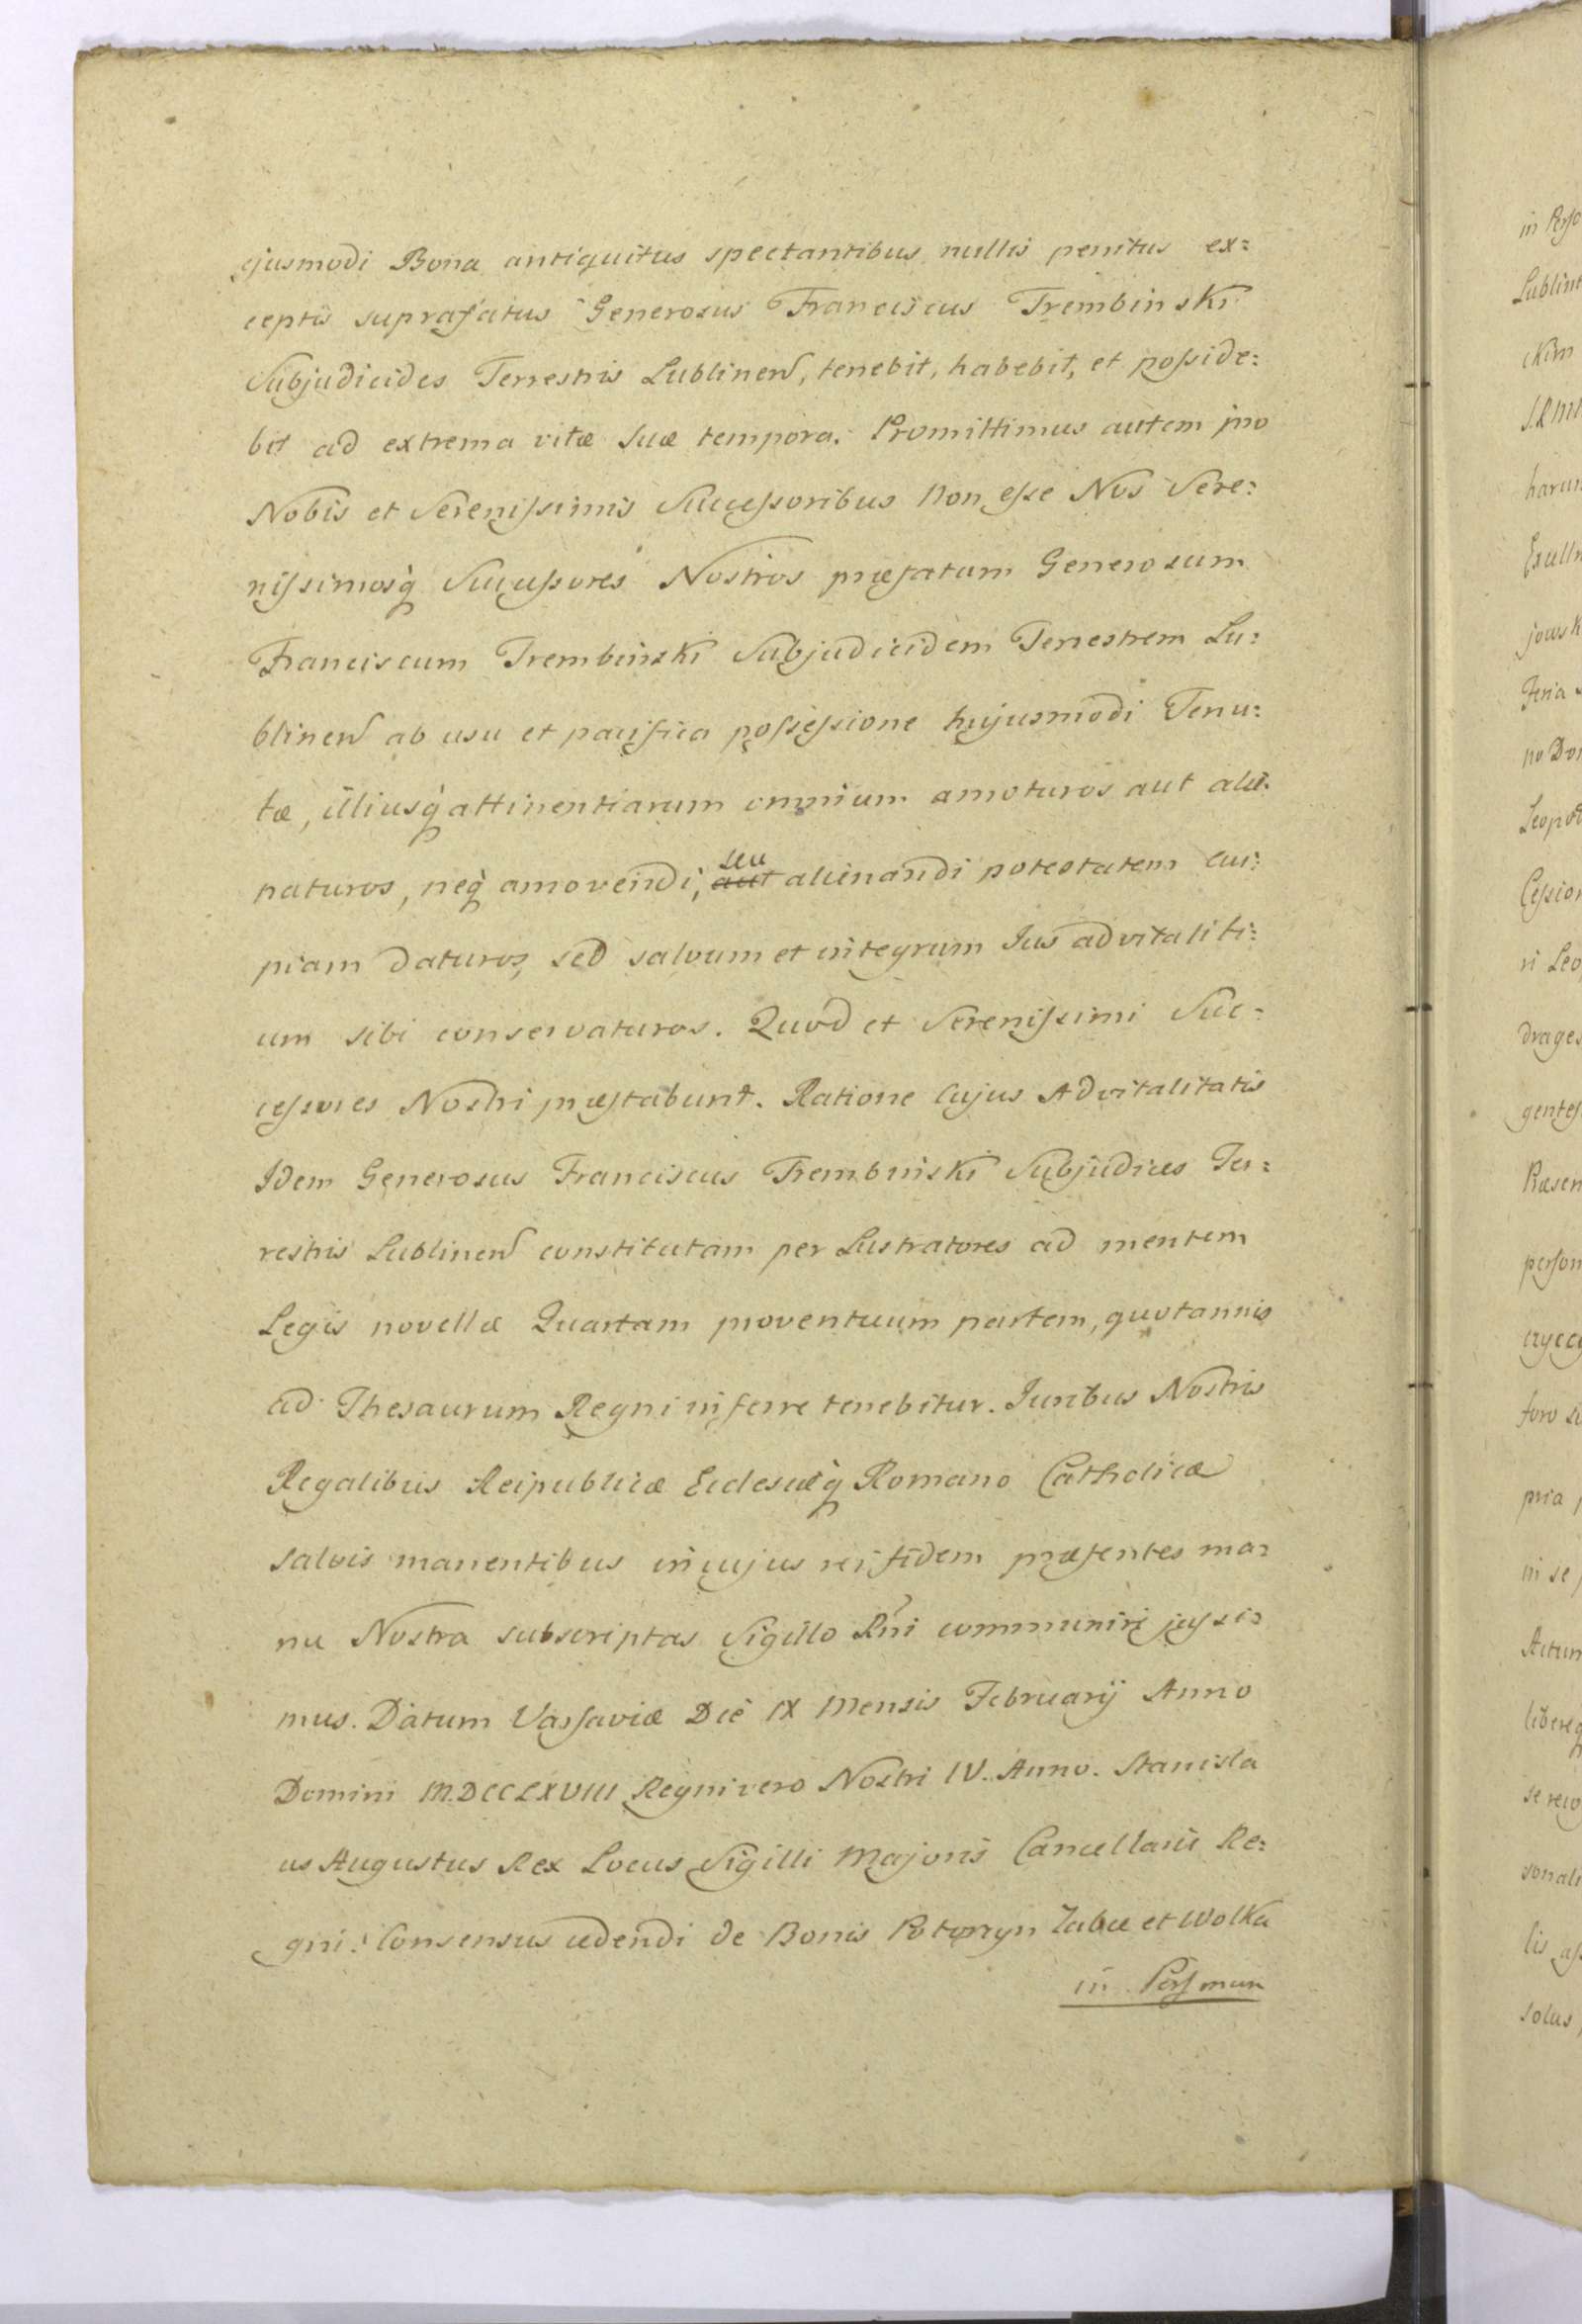 ejusmodi Bona antiquitus spectantibus nullis penitus ex=
ceptis suprafatus Generosus Franciscus Trembinski
Subjudicides Terrestris Lublinen, tenebit, habebit, et posside=
bit ad extrema vitæ suæ tempora. Promittimus autem pro
Nobis et Serenissimis Successoribus Non esse Nos Sere=
nissimosq Successores Nostros præfatum Generosum
Franciscum Trembinski Subjudicidem Terrestrem Lu=
blinen ab usu et pacifica possessione hujusmodi Tenu=
tæ, illiusq attinentiarum omnium amoturos aut alie=
naturos, neq amovendi, aut seu alienandi potestatem cui=
piam daturos, sed salvum et integrum Jus advitaliti=
um sibi conservaturos. Quod et Serenissimi Suc=
cessores Nostri præstabunt. Ratione cujus Advitalitatis
Idem Generosus Franciscus Trembinski Subjudices Ter=
restris Lublinen constitutam per Lustratores ad mentem
Legis novellæ Quartam proventuum partem, quotannis
ad Thesaurum Regni inferre tenebitur. Juribus Nostris
Regalibus Reipublicæ Ecclesiæq Romano Catholicæ
salvis manentibus in cujus rei fidem præsentes ma=
nu Nostra subscriptas Sigillo Rni communiri jussi=
mus. Datum Varsaviæ Die IX Mensis Februarij Anno
Domini M.DCCLXVIII Regni vero Nostri IV. Anno. Stanisla
us Augustus Rex Locus Sigilli Majoris Cancellarii Re=
gni: Consensus cedendi de Bonis Poturzyn Zabcze et Wolka
in Persmun
in Perso
Lublin
ckim
harum
jowsk
Feria
no Do
Leopol
Cession
ri Leo
drages
gentes
Præsen
person
foro
pria
in se
Actum
sonali
lis
solus